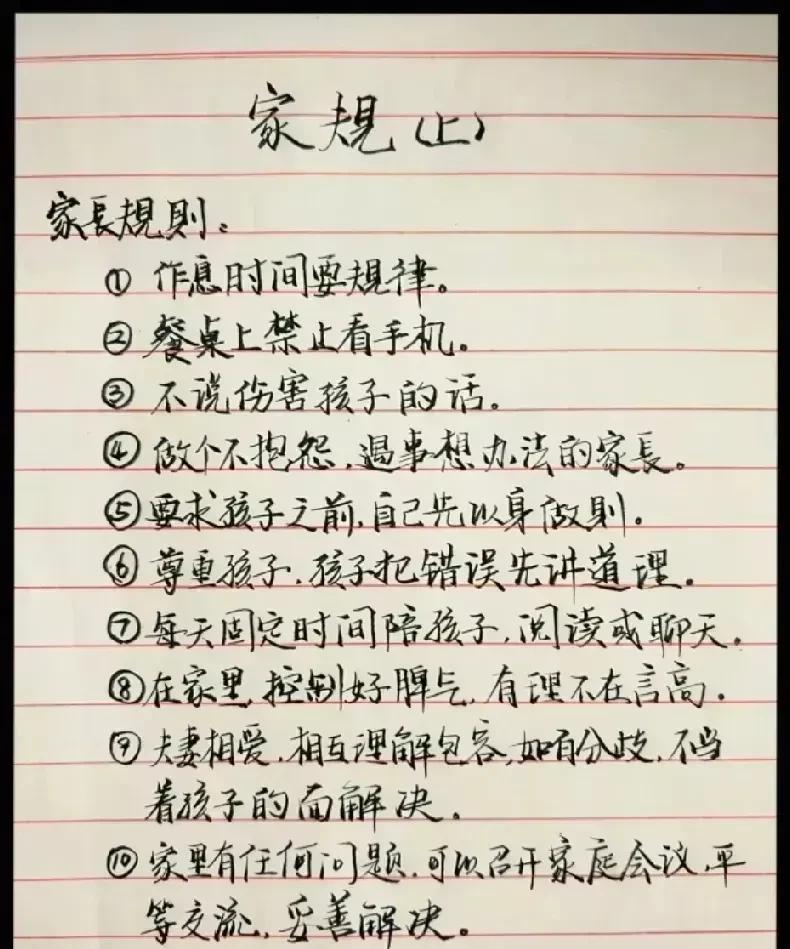 家規（上）
家長規則：
① 作息时间要規律。
② 餐桌上禁止看手机。
③ 不说伤害孩子的话。
④ 做个不抱怨，遇事想办法的家長。
⑤ 要求孩子之前，自己先以身做则。
⑥ 尊重孩子，孩子犯错误先讲道理。
⑦ 每天固定时间陪孩子，阅读或聊天。
⑧ 在家里，控制好脾气，有理不在言高。
⑨ 夫妻相爱，相互理解包容，如有分歧，不当
着孩子的面解决。
⑩ 家里有任何问题，可以召开家庭会议，平
等交流，妥善解决。